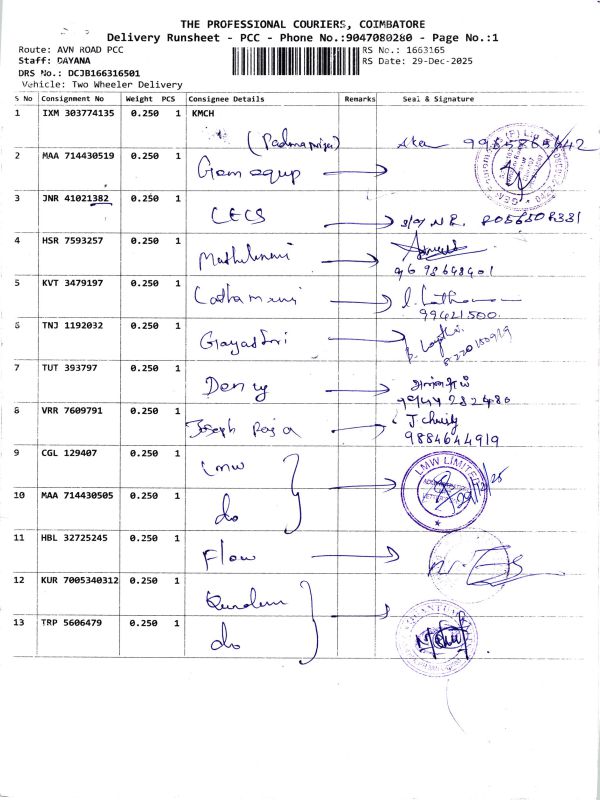 THE PROFESSIONAL COURIERS, COIMBATORE
Delivery Runsheet - PCC - Phone No.:9047080280 - Page No.:1
Route: AVN ROAD PCC RS No.: 1663165
Staff: DAYANA RS Date: 29-Dec-2025
DRS No.: DCJB166316501
Vehicle: Two Wheeler Delivery
S No Consignment No Weight PCS Consignee Details Remarks Seal & Signature
1 IXM 303774135 0.250 1 KMCH
(Padmapriya)
2 MAA 714430519 0.250 1
3 JNR 41021382 0.250 1 CECS 8056508331
4 HSR 7593257 0.250 1
9698648401
5 KVT 3479197 0.250 1
99421500.
6 TNJ 1192032 0.250 1 Gayathri
7 TUT 393797 0.250 1 Deny
9944282480
8 VRR 7609791 0.250 1 Joseph Raja
9884644919
9 CGL 129407 0.250 1 Lmw LMW LIMITED
10 MAA 714430505 0.250 1 do
11 HBL 32725245 0.250 1 Flow
12 KUR 7005340312 0.250 1
13 TRP 5606479 0.250 1 do